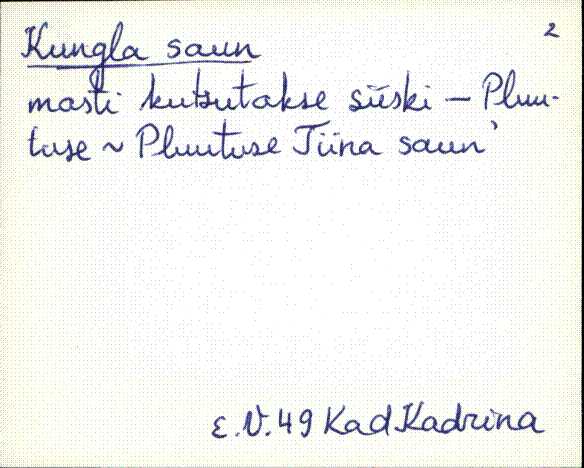 2
Kungla saun
masti kutsutakse siiski – Pluu-
tuse ~ Pluutuse Tiina saun'
E.V. 49 Kad Kadrina